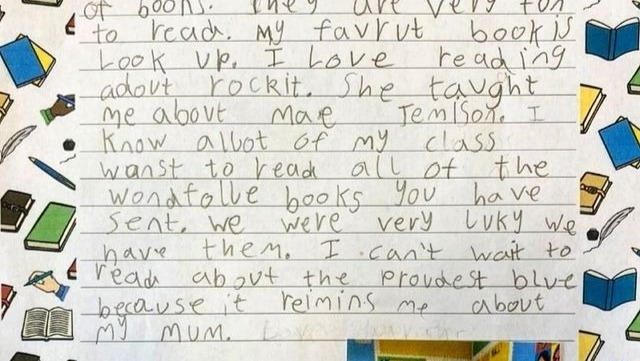 of books. They are very fun
to read. My favrut book is
Look up. I Love reading
adout rockit. She taught
me about Mae Jemison. I
know allot of my class
wanst to read all of the
wondfolle books you have
sent. we were very luky we
have them. I can't wait to
read about the proudest blue
because it reimins me about
my mum.